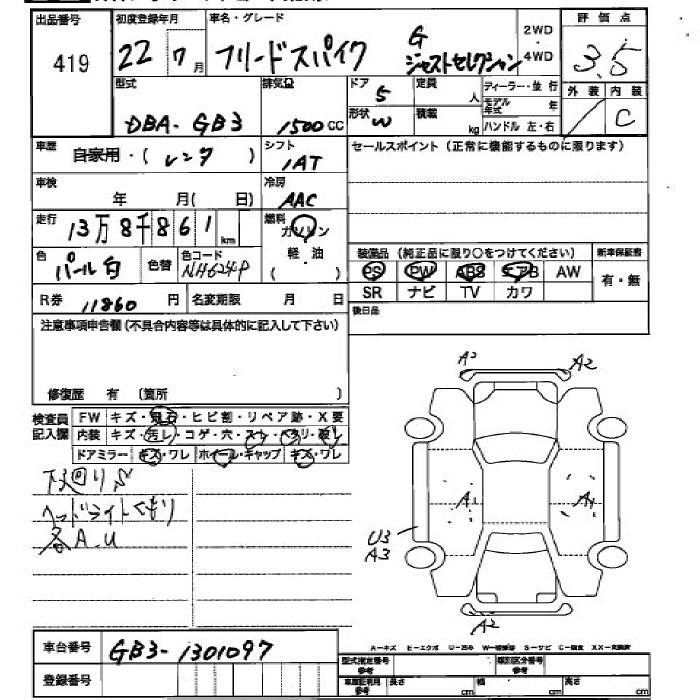 出品番号 初度登録年月 車名・グレード 2WD 評価点
419 22 7月 フリードスパイク G ジャストセレクション 4WD 3.5
型式 排気量 ドア 定員 ディーラー・並行 外装 内装
DBA-GB3 1500CC 5 人 モデル年式 年 / C
形状 W 積載 kg ハンドル 左・右
車歴 自家用・(レンタ) シフト セールスポイント(正常に機能するものに限ります)
1AT
車検 年 月(日) 冷房
AAC
走行 13万8千861km 燃料 ガソリン
軽・油
( )
色 パール白 色替 色コード NH624P
装備品(純正品に限り○をつけてください) 新車保証書
PS PW ABS エアB AW 有・無
SR ナビ TV カワ
R券 11860円 名変期限 月 日 後日品
注意事項申告欄(不具合内容等は具体的に記入して下さい)
修復歴 有(箇所 )
検査員記入欄 FW キズ・飛石・ヒビ割・リペア跡・X要
内装 キズ・汚レ・コゲ・穴・
ドアミラー キズ・ワレ ホイール・キャップ キズ・ワレ
下廻りS
ヘッドライトくもり
各A.U
A2 A2
A1 A1
U3
A3
A2
A-キズ E-エクボ U-凹 S-サビ C-腐食 XX-交換済
車台番号 GB3-1301097
登録番号
型式指定番号 参考 類別区分番号 参考
車庫証明用 参考 長さ cm 幅 cm 高さ cm